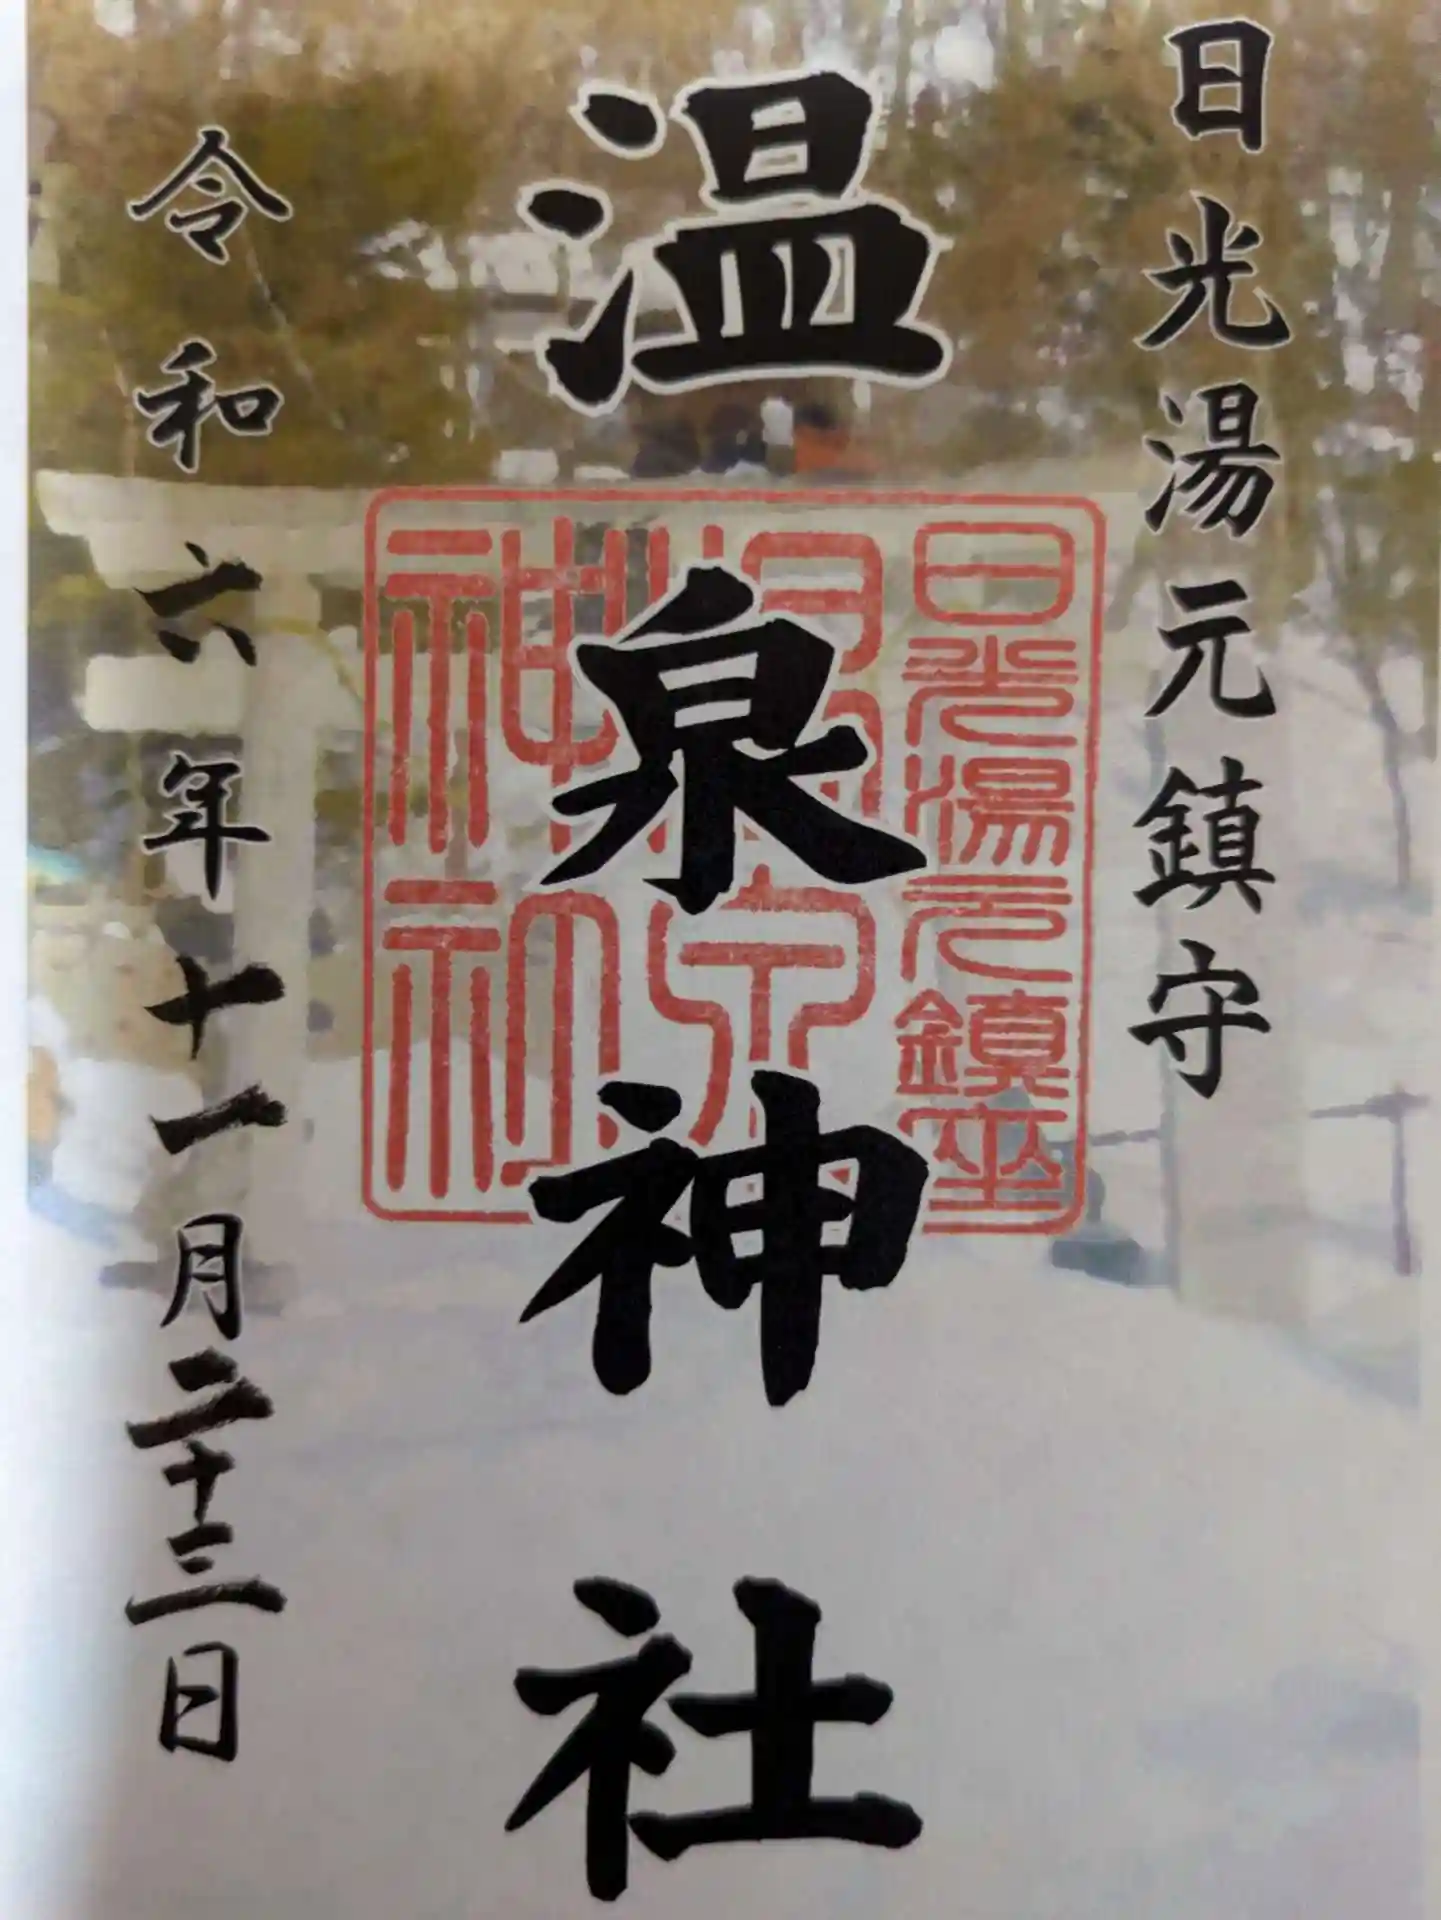 日光湯元鎮守
温泉神社
日光湯元鎮座
温泉
神社
令和六年十一月二十三日